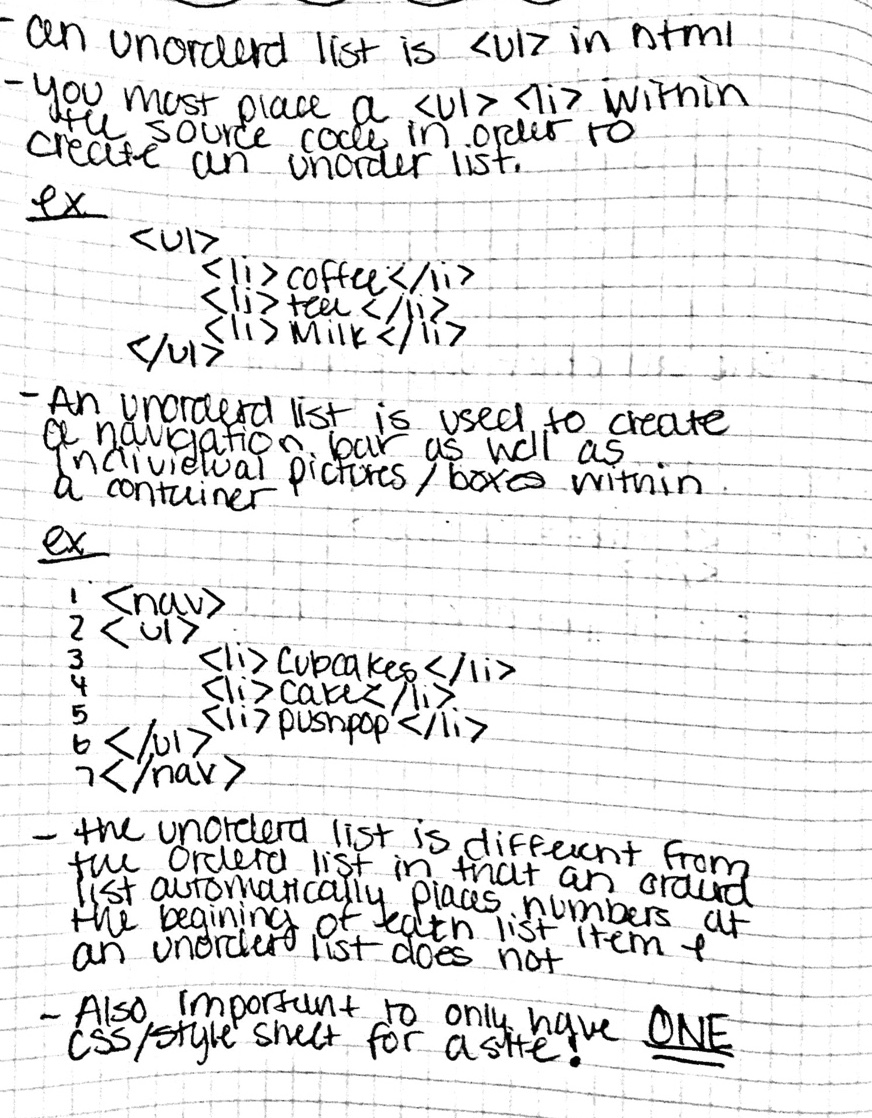 - an unorderd list is <ul> in html
- you must place a <ul> <li> within
the source code in order to
create an unorder list.
ex
<ul>
<li> coffee </li>
<li> tea </li>
<li> Milk </li>
</ul>
- An unorderd list is used to create
a navigation bar as well as
individual pictures / boxes within
a container
ex
1 <nav>
2 <ul>
3 <li> Cupcakes </li>
4 <li> cakez </li>
5 <li> pushpop </li>
6 </ul>
7 </nav>
- the unorderd list is different from
the orderd list in that an orderd
list automatically places numbers at
the begining of each list item &
an unorderd list does not
- Also important to only have ONE
CSS/style sheet for a site!